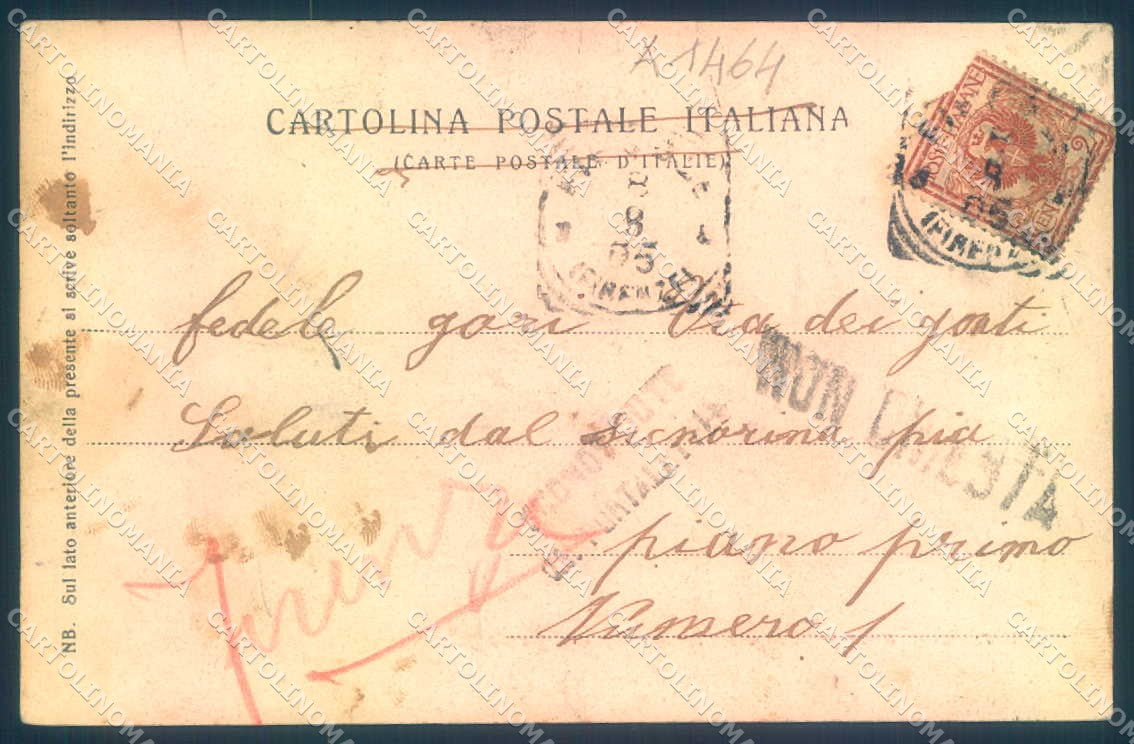 A1464
CARTOLINA POSTALE ITALIANA
(CARTE POSTALE D'ITALIE)
NB. Sul lato anteriore della presente si scrive soltanto l'indirizzo
POSTE ITALIANE
CENT. 2
8
05
(FIRENZE)
fedele gori Via dei gonti
Saluti dal Signorina pia
piano primo
Numero 1
NON CHIESTA
Firenze
CARTOLINOMANIA